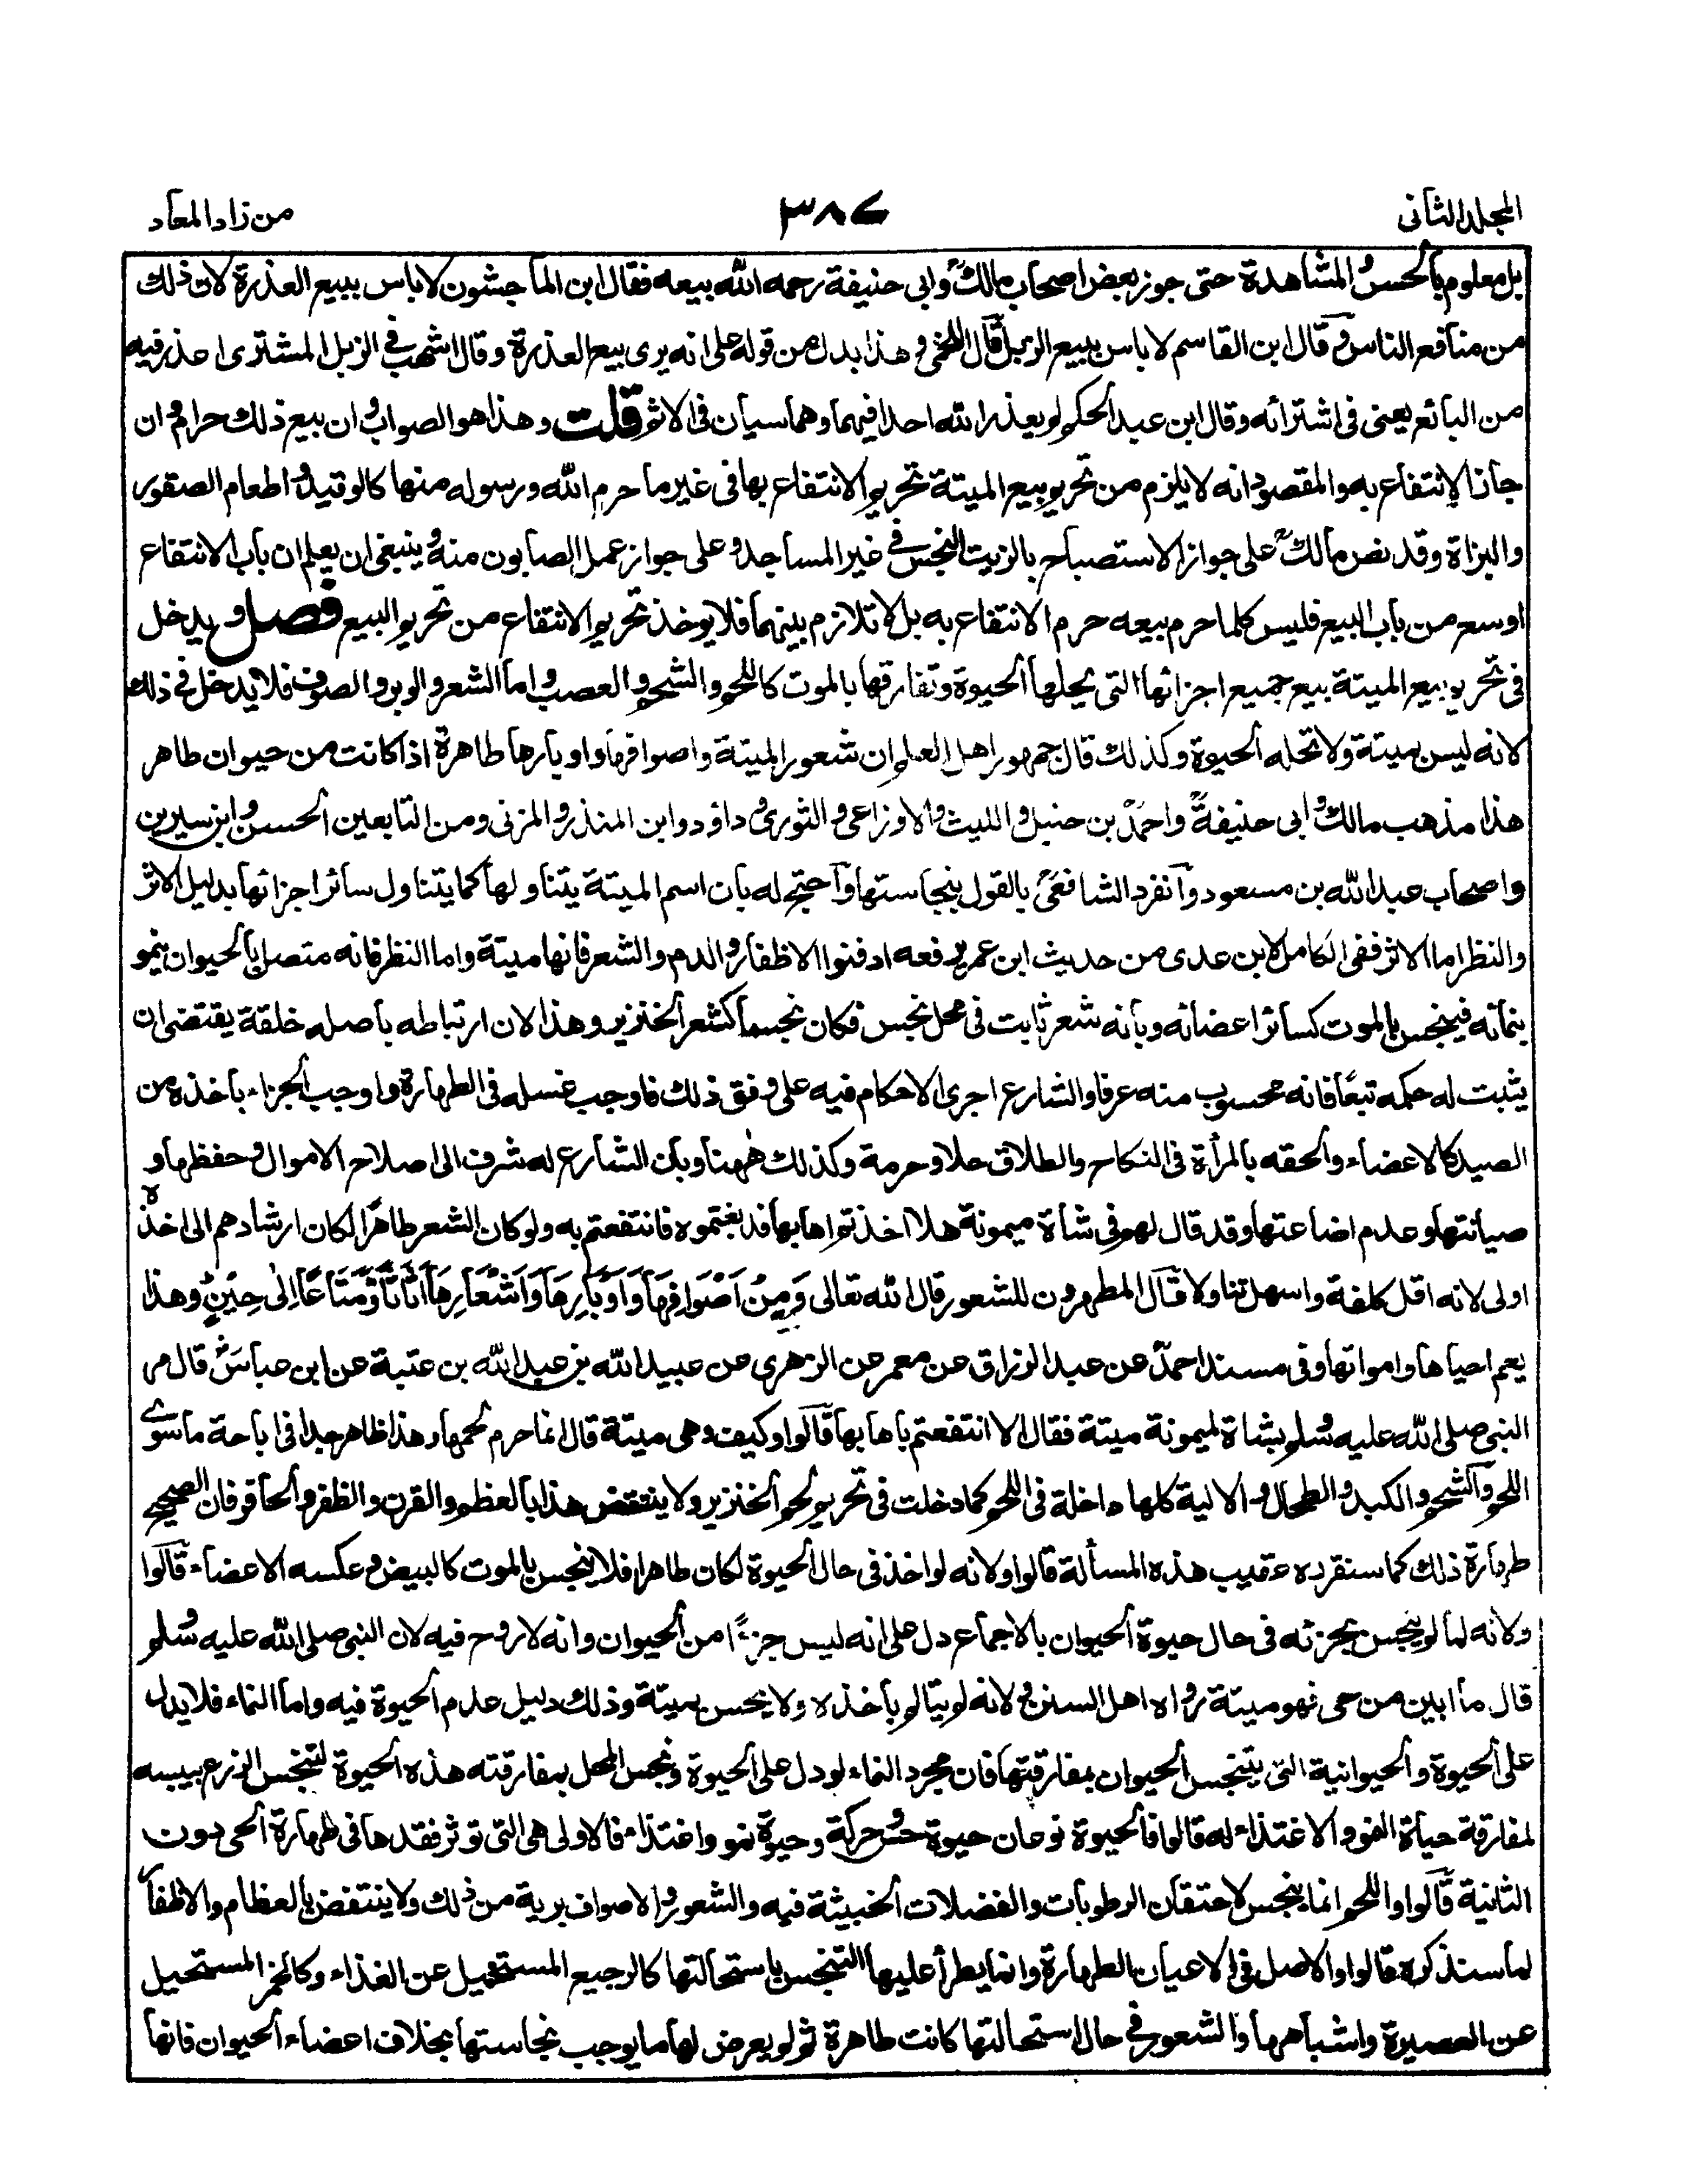 المجلد الثانى
٣٨٧
من زاد المعاد
بل معلوم بالحس والمشاهدة حتى جوز بعض اصحاب مالك وابى حنيفة رحمه الله بيعه فقال ابن الماجشون لا باس ببيع العذرة لان ذلك
من منافع الناس وقال ابن القاسم لا باس ببيع الزبل قال اللخمى وهذا يدل من قوله على انه يرى بيع العذرة وقال اشهب فى الزبل المشترى اعذر فيه
من البائع يعنى فى اشترائه وقال ابن عبد الحكم لم يعذر الله احدا فيهما وهما سيان فى الاثم قلت وهذا هو الصواب وان بيع ذلك حرام وان
جاز الانتفاع به والمقصود انه لا يلزم من تحريم بيع الميتة تحريم الانتفاع بها فى غير ما حرم الله ورسوله منها كالوقيد واطعام الصقور
والبزاة وقد نص مالك على جواز الاستصباح بالزيت النجس فى غير المساجد وعلى جواز عمل الصابون منه وينبغى ان يعلم ان باب الانتفاع
اوسع من باب البيع فليس كلما حرم بيعه حرم الانتفاع به بل لا تلازم بينهما فلا يوخذ تحريم الانتفاع من تحريم البيع فصل ويدخل
فى تحريم بيع الميتة بيع جميع اجزائها التى يحلها الحيوة وتفارقها بالموت كاللحم والشحم والعصب واما الشعر والوبر والصوف فلا يدخل فى ذلك
لانه ليس بميتة ولا تحله الحيوة وكذلك قال جمهور اهل العلم ان شعور الميتة واصوافها واوبارها طاهرة اذا كانت من حيوان طاهر
هذا مذهب مالك وابى حنيفة واحمد بن حنبل والليث والاوزاعى والثورى وداؤد وابن المنذر والمزنى ومن التابعين الحسن وابن سيرين
واصحاب عبد الله بن مسعود وانفرد الشافعى بالقول بنجاستها واحتج له بان اسم الميتة يتناولها كما يتناول سائر اجزائها بدليل الاثر
والنظر اما الاثر ففى الكامل لابن عدى من حديث ابن عمر يرفعه ادفنوا الاظفار والدم والشعر فانها ميتة واما النظر فانه متصل بالحيوان ينمو
بنمائه فينجس بالموت كسائر اعضائه وبانه شعر ثابت فى محل نجس فكان نجسا كشعر الخنزير وهذا لان ارتباطه باصله خلقة يقتضى ان
يثبت له حكمه تبعا فانه محسوب منه عرفا والشارع اجرى الاحكام فيه على وفق ذلك فاوجب غسله فى الطهارة واوجب الجزاء باخذه من
الصيد كالاعضاء والحقه بالمرأة فى النكاح والطلاق حلا وحرمة وكذلك ههنا وبان الشارع له شرف الى اصلاح الاموال وحفظها و
صيانتها وعدم اضاعتها وقد قال لهم فى شاة ميمونة هلا اخذتم اهابها فدبغتموه فانتفعتم به ولو كان الشعر طاهرا لكان ارشادهم الى اخذه
اولى لانه اقل كلفة واسهل تناولا قال المطهرون للشعور قال الله تعالى وَمِنْ اَصْوَافِهَا وَاَوْبَارِهَا وَاَشْعَارِهَا اَثَاثًا وَّمَتَاعًا اِلٰى حِيْنٍ وهذا
يعم احياها وامواتها وفى مسند احمد عن عبد الرزاق عن معمر عن الزهرى عن عبيد الله بن عبد الله بن عتبة عن ابن عباس قال مر
النبى صلى الله عليه وسلم بشاة لميمونة ميتة فقال الا انتفعتم باهابها قالوا وكيف وهى ميتة قال انما حرم لحمها وهذا ظاهر جدا فى اباحة ما سوى
اللحم والشحم والكبد والطحال والالية كلها داخلة فى اللحم كما دخلت فى تحريم لحم الخنزير ولا ينتقض هذا بالعظم والقرن والظفر والحافر فان الصحيح
طهارة ذلك كما سنقرده عقيب هذه المسألة قالوا ولانه لو اخذ فى حال الحيوة لكان طاهرا فلا ينجس بالموت كالبيض وعكسه الاعضاء قالوا
ولانه لما لم ينجس بجزئه فى حال حيوة الحيوان بالاجماع دل على انه ليس جزءا من الحيوان وانه لا روح فيه لان النبى صلى الله عليه وسلم
قال ما ابين من حى فهو ميتة رواه اهل السنن ولانه لم يتالم باخذه ولا يحس بميتة وذلك دليل عدم الحيوة فيه واما النماء فلا يدل
على الحيوة والحيوانية التى يتنجس الحيوان بمفارقتها فان مجرد النماء لو دل على الحيوة ونجس المحل بمفارقته هذه الحيوة لتنجس الزرع بيبسه
لمفارقة حياة النمو والاغتذاء له قالوا فالحيوة نوعان حيوة حس وحركة وحيوة نمو واغتذاء فالاولى هى التى توثر فقدها فى طهارة الحى دون
الثانية قالوا واللحم انما ينجس لاحتقان الرطوبات والفضلات الخبيثة فيه والشعور والاصواف برية من ذلك ولا ينتقض بالعظام والاظفار
لما سنذكره قالوا والاصل فى الاعيان الطهارة وانما يطرأ عليها التنجس باستحالتها كالرجيع المستحيل عن الغذاء وكالخمر المستحيل
عن العصيرة واشباهها والشعور فى حال استحالتها كانت طاهرة ثم لم يعرض لها ما يوجب نجاستها بخلاف اعضاء الحيوان فانها